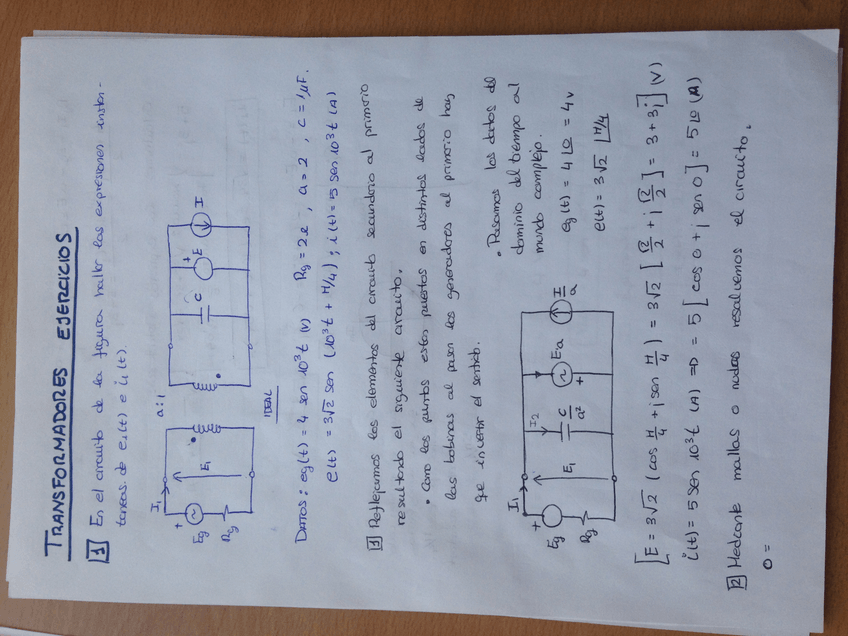 TRANSFORMADORES EJERCICIOS
1 En el circuito de la figura hallar las expresiones instan-
táneas de e1(t) e i1(t).
a:1
I1
+
Eg
Rg
E1
C
+
E
I
IDEAL
DATOS: eg(t) = 4 sen 10³t (V) Rg = 2Ω, a = 2, C = 1μF.
e(t) = 3√2 sen (10³t + π/4); i(t) = 5 sen 10³t (A)
1 Reflejamos los elementos del circuito secundario al primario
resultando el siguiente circuito.
• Como los puntos están puestos en distintos lados de
las bobinas al pasar los generadores al primario hay
qe invertir el sentido.
I1
+
Eg
Rg
E1
I2
C/a²
Ea
+
I/a
• Pasamos los datos del
dominio del tiempo al
mundo complejo.
eg(t) = 4∠0 = 4v
e(t) = 3√2 ∠π/4
[E = 3√2 (cos π/4 + j sen π/4) = 3√2 [√2/2 + j √2/2] = 3 + 3j] (V)
i(t) = 5 sen 10³t (A) => = 5 [cos 0 + j sen 0] = 5∠0 (A)
2 Mediante mallas o nudos resolvemos el circuito.
0 =